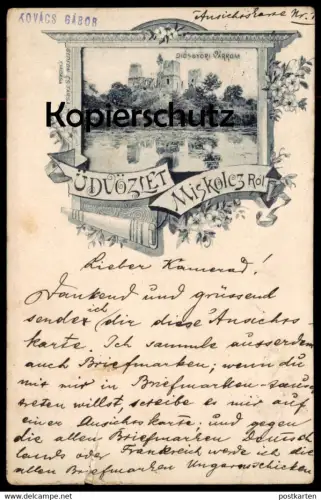 KOVÁCS GÁBOR
Ansichtskarte Nr. 1
DIÓSGYŐRI VÁRROM
Kopierschutz
ÜDVÖZLET
MISKOLCZ RÓL
Lieber Kamerad!
Dankend und grüssend
sende ich dir diese Ansichts-
karte. Ich sammle ausserdem
auch Briefmarken; wenn du
mit mir in Briefmarken-
treten willst, schreibe es mir auf
einer Ansichtskarte, und gegen
die alten Briefmarken Deutsch
lands oder Frankreich werde ich die
alten Briefmarken Ungarns schicken
postkarten